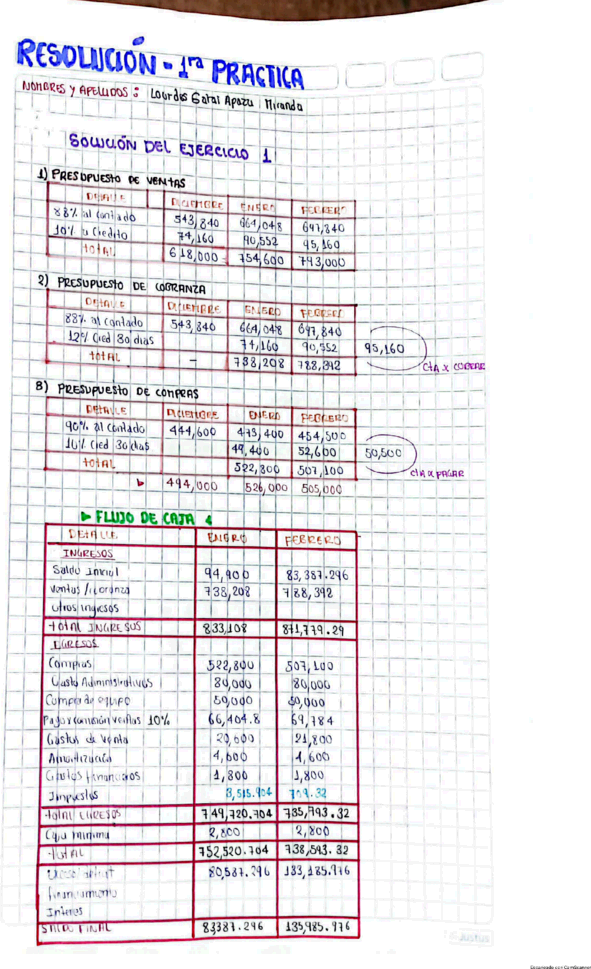 RESOLUCIÓN - 1ra PRACTICA
NOMBRES Y APELLIDOS: Lourdes Apaza Miranda
SOLUCIÓN DEL EJERCICIO 1
1) PRESUPUESTO DE VENTAS
DETALLE DICIEMBRE ENERO FEBRERO
88% al contado 543,840 664,048 697,840
a Credito 74,160 90,552 95,160
TOTAL 618,000 754,600 793,000
2) PRESUPUESTO DE COBRANZA
DETALLE DICIEMBRE ENERO FEBRERO
88% al contado 543,840 664,048 697,840
12% Cred 30 dias 74,160 90,552 95,160
TOTAL - 738,208 788,392 CTA X COBRAR
3) PRESUPUESTO DE COMPRAS
DETALLE DICIEMBRE ENERO FEBRERO
90% al contado 444,600 473,400 454,500
10% Cred 30 dias 49,400 52,600 50,500
TOTAL 522,800 507,100 CTA X PAGAR
494,000 526,000 505,000
FLUJO DE CAJA
DETALLE ENERO FEBRERO
INGRESOS
Saldo Inicial 94,900 83,387.296
Ventas / Cobranza 738,208 788,392
Otros ingresos
TOTAL INGRESOS 833,108 871,779.29
EGRESOS
Compras 522,800 507,100
Gasto Administrativos 80,000 80,000
Compra de equipo 50,000 50,000
Pago x comisión ventas 10% 66,404.8 69,784
Gastos de venta 20,600 21,800
Amortización 4,600 4,600
Gastos financieros 1,800 1,800
Impuestos 3,515.904 709.32
TOTAL EGRESOS 749,720.704 735,793.32
Caja minima 2,800 2,800
TOTAL 752,520.704 738,593.32
80,587.296 133,185.976
financiamiento
Interes
SALDO FINAL 83387.296 135,985.976
Justus
Escaneado con CamScanner